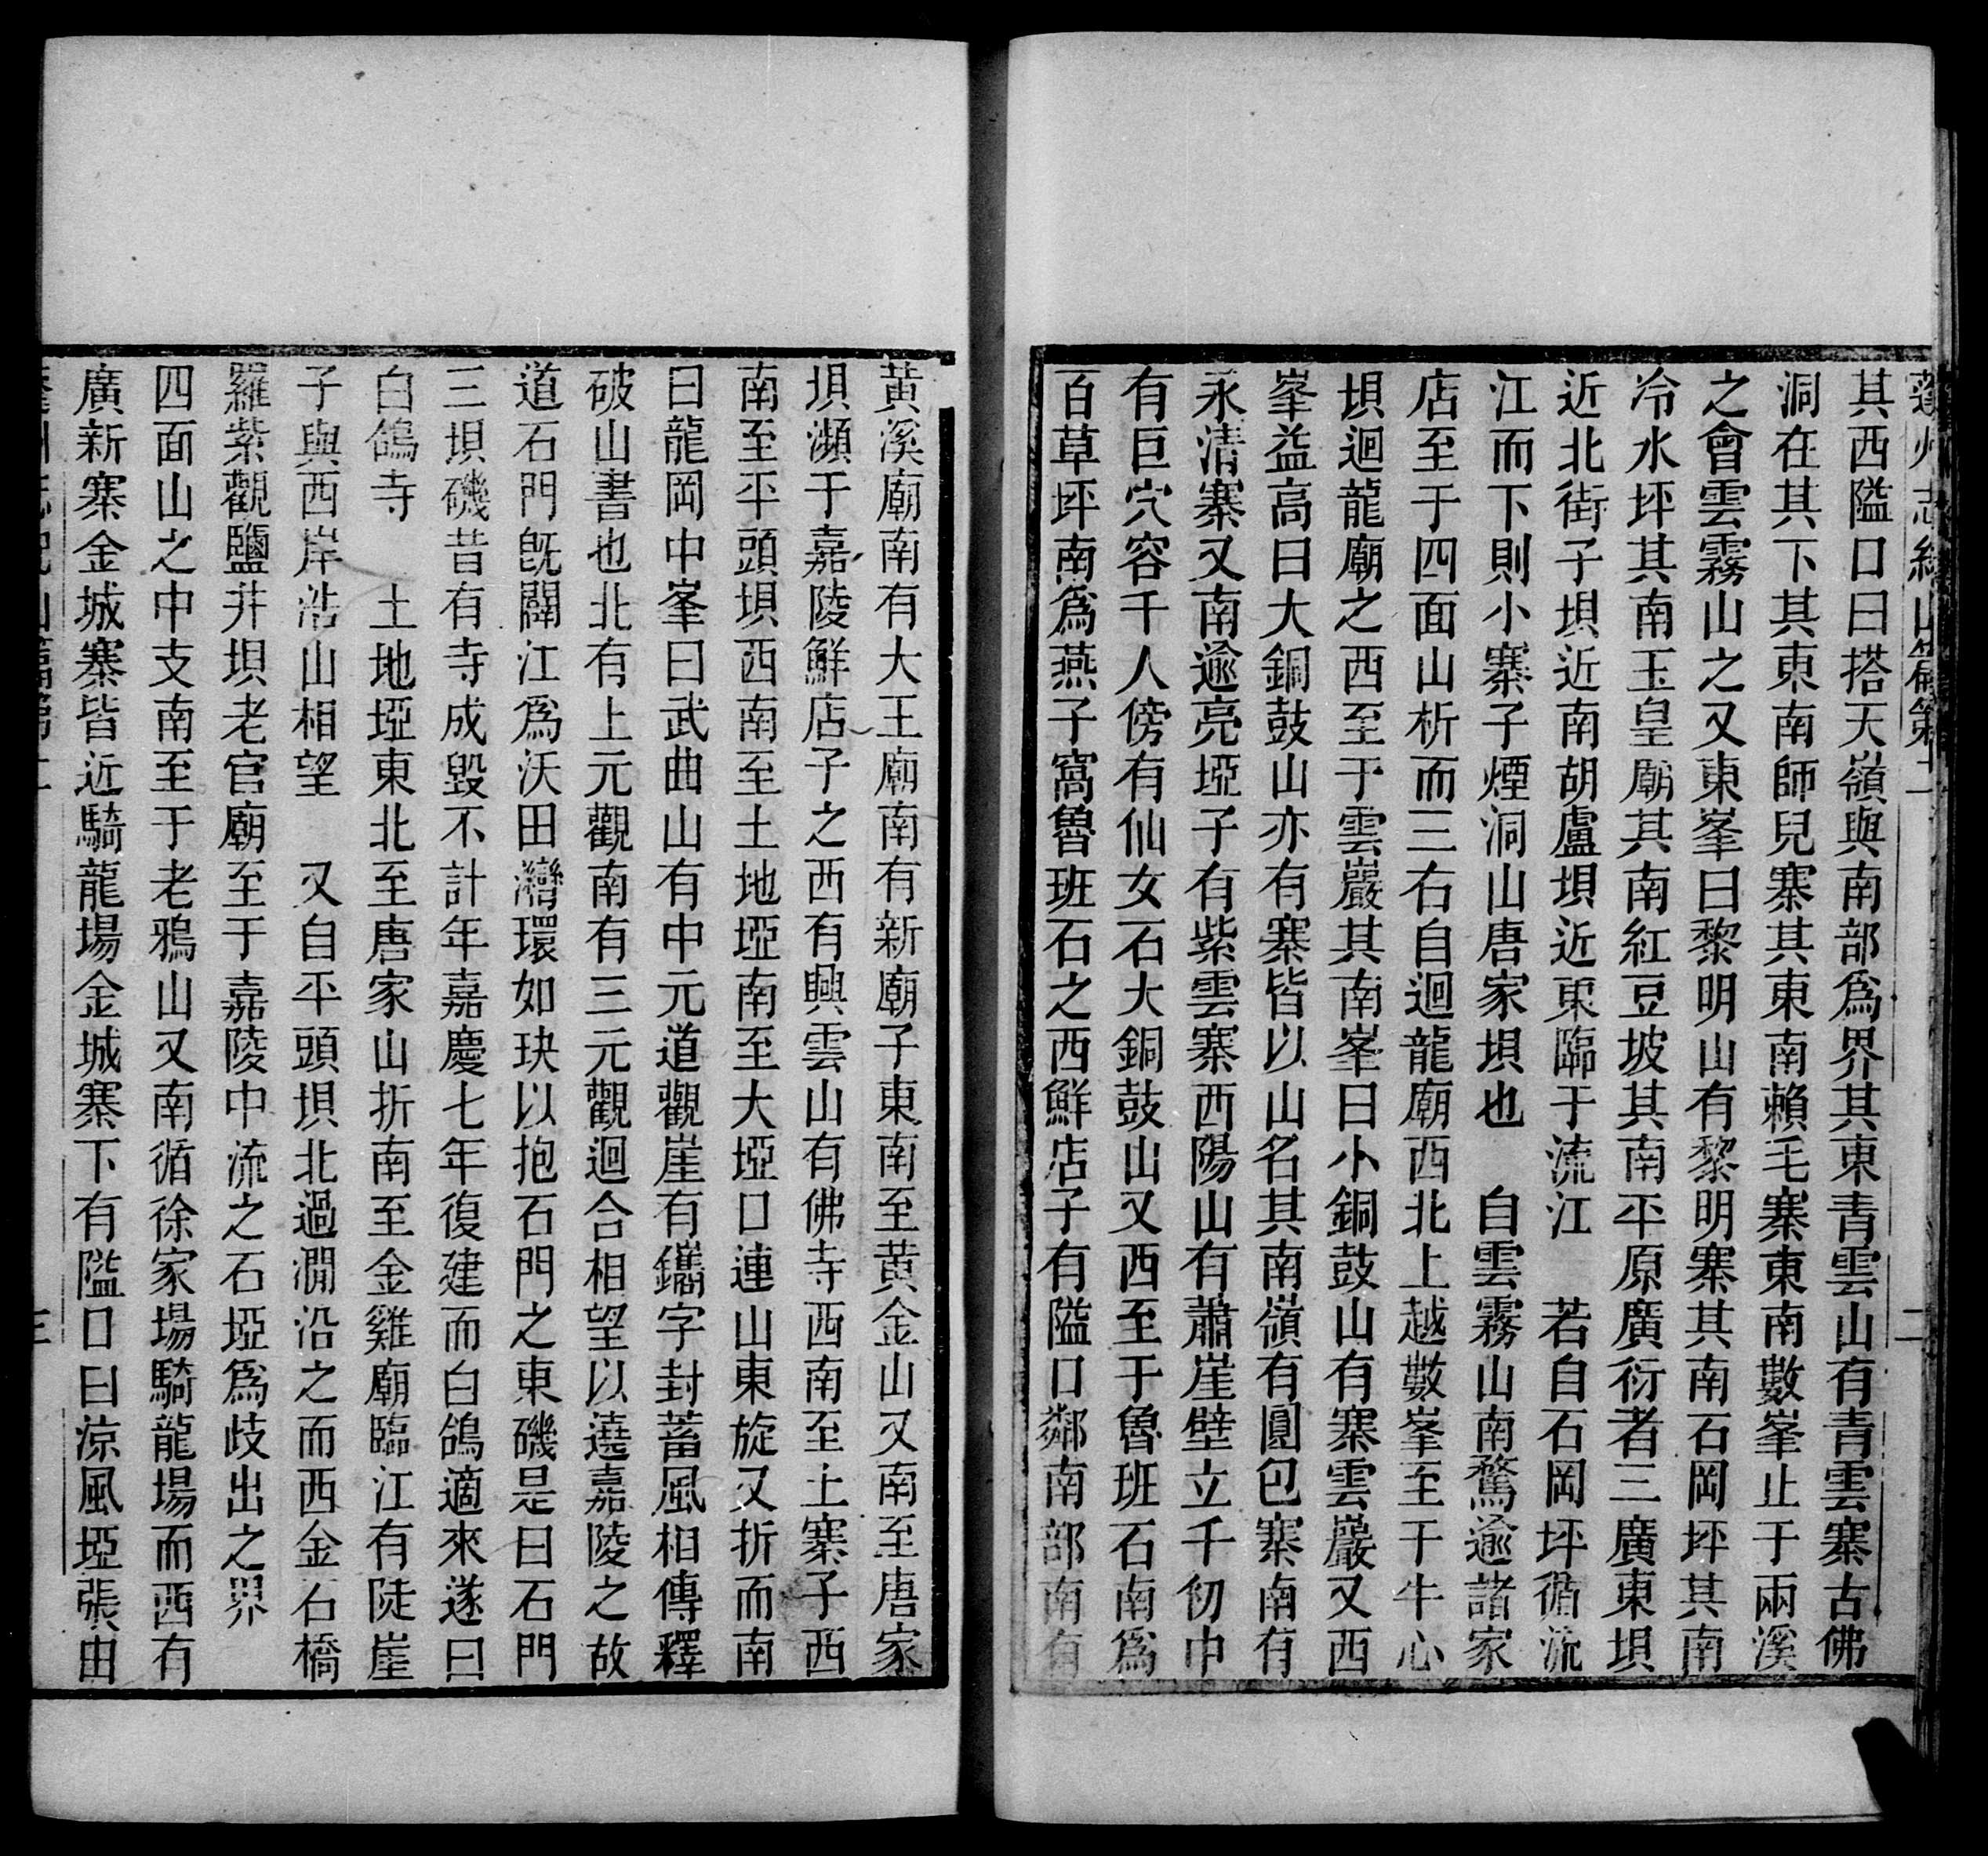 蓬州志紀山篇第二 二
其西隘口曰搭天嶺與南部爲界其東青雲山有青雲寨古佛
洞在其下其東南師兒寨其東南賴毛寨東南數峯止于兩溪
之會雲霧山之又東峯曰黎明山有黎明寨其南石岡坪其南
冷水坪其南玉皇廟其南紅豆坡其南平原廣衍者三廣東垻
近北街子垻近南胡盧垻近東臨于流江　若自石岡坪循流
江而下則小寨子煙洞山唐家垻也　自雲霧山南騖逾諸家
店至于四面山析而三右自迴龍廟西北上越數峯至于牛心
垻迴龍廟之西至于雲巖其南峯曰小銅鼓山有寨雲巖又西
峯益高曰大銅鼓山亦有寨皆以山名其南嶺有圓包寨南有
永清寨又南逾亮埡子有紫雲寨西陽山有蕭崖壁立千仞中
有巨穴容千人傍有仙女石大銅鼓山又西至于魯班石南爲
百草坪南爲燕子窩魯班石之西鮮店子有隘口鄰南部南有
黃溪廟南有大王廟南有新廟子東南至黃金山又南至唐家
垻瀕于嘉陵鮮店子之西有興雲山有佛寺西南至土寨子西
南至平頭垻西南至土地埡南至大埡口連山東旋又折而南
曰龍岡中峯曰武曲山有中元道觀崖有鐫字封蓄風相傳釋
破山書也北有上元觀南有三元觀迴合相望以遶嘉陵之故
道石門旣闢江爲沃田灣環如玦以抱石門之東磯是曰石門
三垻磯昔有寺成毀不計年嘉慶七年復建而白鴿適來遂曰
白鴿寺　土地埡東北至唐家山折南至金雞廟臨江有陡崖
子與西岸浩山相望　又自平頭垻北過澗沿之而西金石橋
羅紫觀鹽井垻老官廟至于嘉陵中流之石埡爲歧出之界
四面山之中支南至于老鴉山又南循徐家場騎龍場而西有
廣新寨金城寨皆近騎龍場金城寨下有隘口曰涼風埡張由
蓬州志紀山篇第二 三